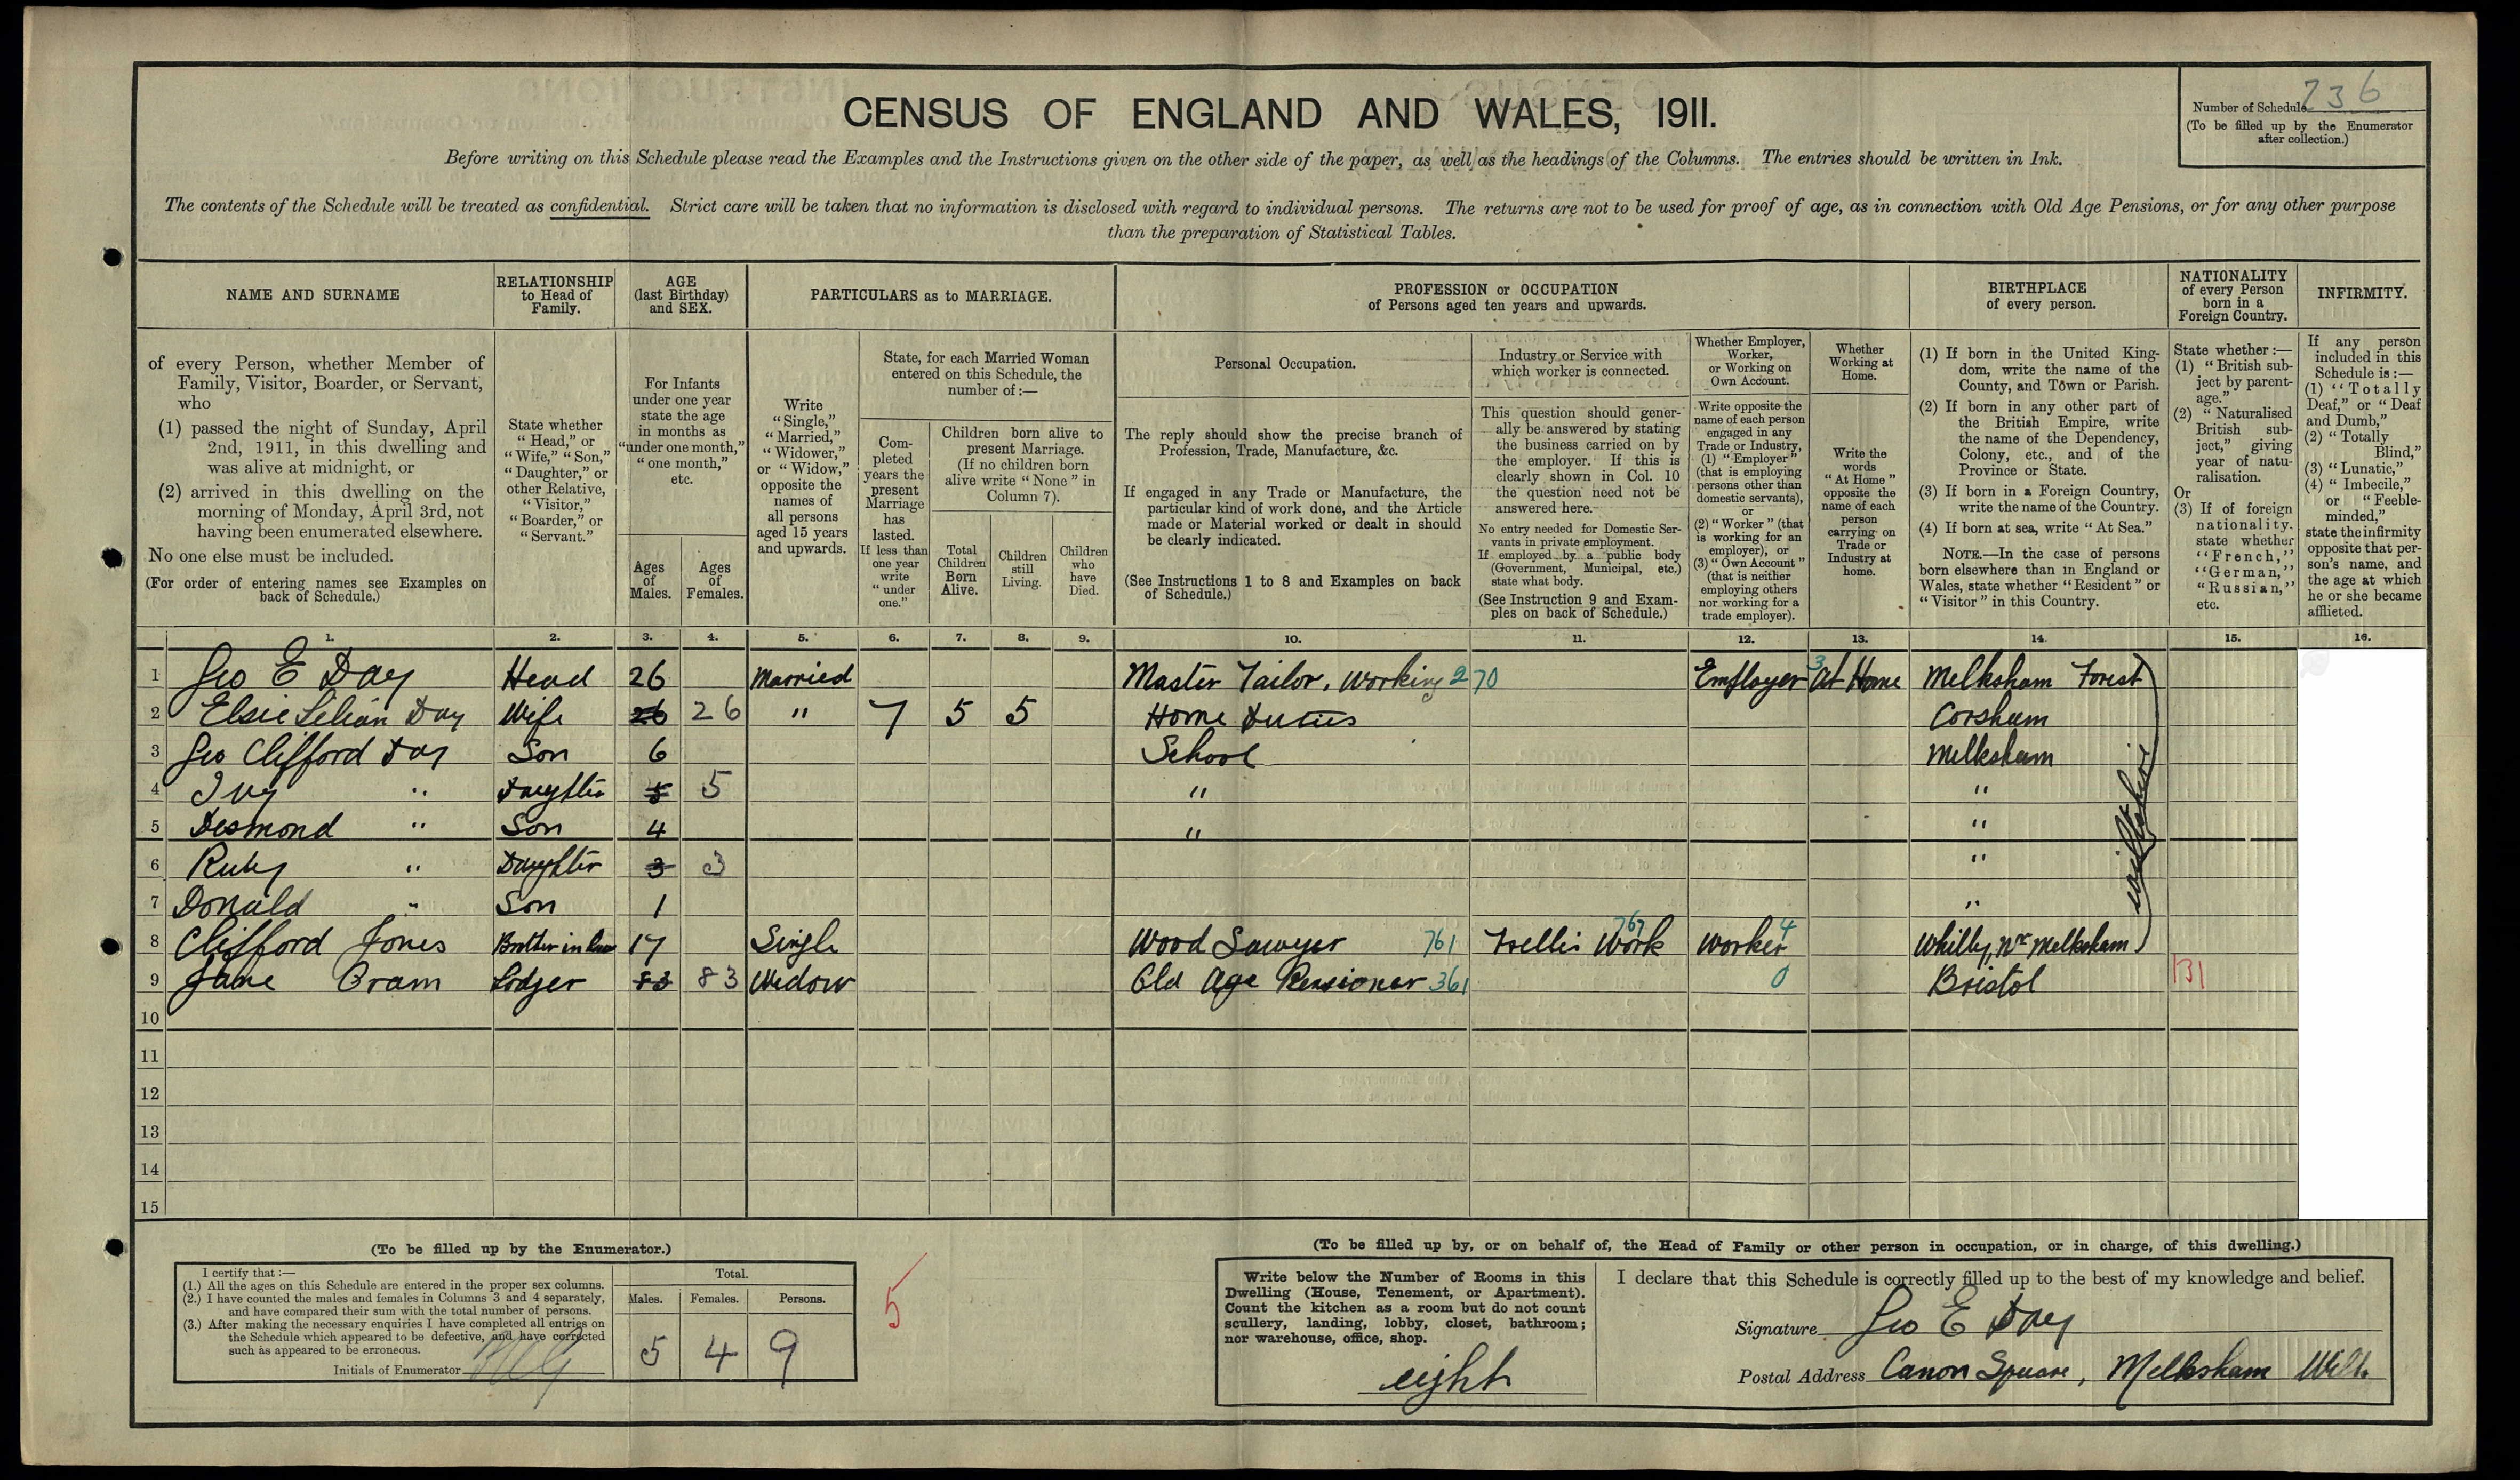 CENSUS OF ENGLAND AND WALES, 1911.
Number of Schedule 236
(To be filled up by the Enumerator after collection.)
Before writing on this Schedule please read the Examples and the Instructions given on the other side of the paper, as well as the headings of the Columns. The entries should be written in Ink.
The contents of the Schedule will be treated as confidential. Strict care will be taken that no information is disclosed with regard to individual persons. The returns are not to be used for proof of age, as in connection with Old Age Pensions, or for any other purpose
than the preparation of Statistical Tables.
NAME AND SURNAME
of every Person, whether Member of
Family, Visitor, Boarder, or Servant,
who
(1) passed the night of Sunday, April
2nd, 1911, in this dwelling and
was alive at midnight, or
(2) arrived in this dwelling on the
morning of Monday, April 3rd, not
having been enumerated elsewhere.
No one else must be included.
(For order of entering names see Examples on
back of Schedule.)
RELATIONSHIP
to Head of
Family.
State whether
"Head," or
"Wife," "Son,"
"Daughter," or
other Relative,
"Visitor,"
"Boarder," or
"Servant."
AGE
(last Birthday)
and SEX.
For Infants
under one year
state the age
in months as
"under one month,"
"one month,"
etc.
Ages
of
Males.
Ages
of
Females.
PARTICULARS as to MARRIAGE.
Write
"Single,"
"Married,"
"Widower,"
or "Widow,"
opposite the
names of
all persons
aged 15 years
and upwards.
State, for each Married Woman
entered on this Schedule, the
number of:—
Completed
years the
present
Marriage
has
lasted.
If less than
one year
write
"under
one."
Children born alive to
present Marriage.
(If no children born
alive write "None" in
Column 7).
Total
Children
Born
Alive.
Children
still
Living.
Children
who
have
Died.
PROFESSION or OCCUPATION
of Persons aged ten years and upwards.
Personal Occupation.
The reply should show the precise branch of
Profession, Trade, Manufacture, &c.
If engaged in any Trade or Manufacture, the
particular kind of work done, and the Article
made or Material worked or dealt in should
be clearly indicated.
(See Instructions 1 to 8 and Examples on back
of Schedule.)
Industry or Service with
which worker is connected.
This question should gener-
ally be answered by stating
the business carried on by
the employer. If this is
clearly shown in Col. 10
the question need not be
answered here.
No entry needed for Domestic Ser-
vants in private employment.
If employed by a public body
(Government, Municipal, etc.)
state what body.
(See Instruction 9 and Exam-
ples on back of Schedule.)
Whether Employer,
Worker,
or Working on
Own Account.
Write opposite the
name of each person
engaged in any
Trade or Industry,
(1) "Employer"
(that is employing
persons other than
domestic servants),
or
(2) "Worker" (that
is working for an
employer), or
(3) "Own Account"
(that is neither
employing others
nor working for a
trade employer).
Whether
Working at
Home.
Write the
words
"At Home"
opposite the
name of each
person
carrying on
Trade or
Industry at
home.
BIRTHPLACE
of every person.
(1) If born in the United King-
dom, write the name of the
County, and Town or Parish.
(2) If born in any other part of
the British Empire, write
the name of the Dependency,
Colony, etc., and of the
Province or State.
(3) If born in a Foreign Country,
write the name of the Country.
(4) If born at sea, write "At Sea."
NOTE.—In the case of persons
born elsewhere than in England or
Wales, state whether "Resident" or
"Visitor" in this Country.
NATIONALITY
of every Person
born in a
Foreign Country.
State whether:—
(1) "British sub-
ject by parent-
age."
(2) "Naturalised
British sub-
ject," giving
year of natu-
ralisation.
Or
(3) If of foreign
nationality,
state whether
"French,"
"German,"
"Russian,"
etc.
INFIRMITY.
If any person
included in this
Schedule is:—
(1) "Totally
Deaf," or "Deaf
and Dumb,"
(2) "Totally
Blind,"
(3) "Lunatic,"
(4) "Imbecile,"
or "Feeble-
minded,"
state the infirmity
opposite that per-
son's name, and
the age at which
he or she became
afflicted.
1. 2. 3. 4. 5. 6. 7. 8. 9. 10. 11. 12. 13. 14. 15. 16.
1 Geo E Day Head 26 Married Master Tailor, Working 270 Employer 3 At Home Melksham Forest
2 Elsie Lilian Day Wife 26 26 " 7 5 5 Home Duties Corsham
3 Geo Clifford Day Son 6 School Melksham
4 Ivy " Daughter 5 5 " "
5 Desmond " Son 4 " "
6 Ruby " Daughter 3 3 "
7 Donald " Son 1 "
Wiltshire
8 Clifford Jones Brother in law 17 Single Wood Sawyer 761 Trellis Work 767 Worker 4 Whitley, Nr Melksham
9 Jane Oram Lodger 83 83 Widow Old Age Pensioner 361 0 Bristol 131
10
11
12
13
14
15
(To be filled up by the Enumerator.)
I certify that:—
(1.) All the ages on this Schedule are entered in the proper sex columns.
(2.) I have counted the males and females in Columns 3 and 4 separately,
and have compared their sum with the total number of persons.
(3.) After making the necessary enquiries I have completed all entries on
the Schedule which appeared to be defective, and have corrected
such as appeared to be erroneous.
Initials of Enumerator
Total.
Males. Females. Persons.
5 4 9
5
(To be filled up by, or on behalf of, the Head of Family or other person in occupation, or in charge, of this dwelling.)
Write below the Number of Rooms in this
Dwelling (House, Tenement, or Apartment).
Count the kitchen as a room but do not count
scullery, landing, lobby, closet, bathroom;
nor warehouse, office, shop.
eight
I declare that this Schedule is correctly filled up to the best of my knowledge and belief.
Signature Geo E Day
Postal Address Canon Square, Melksham Wilts